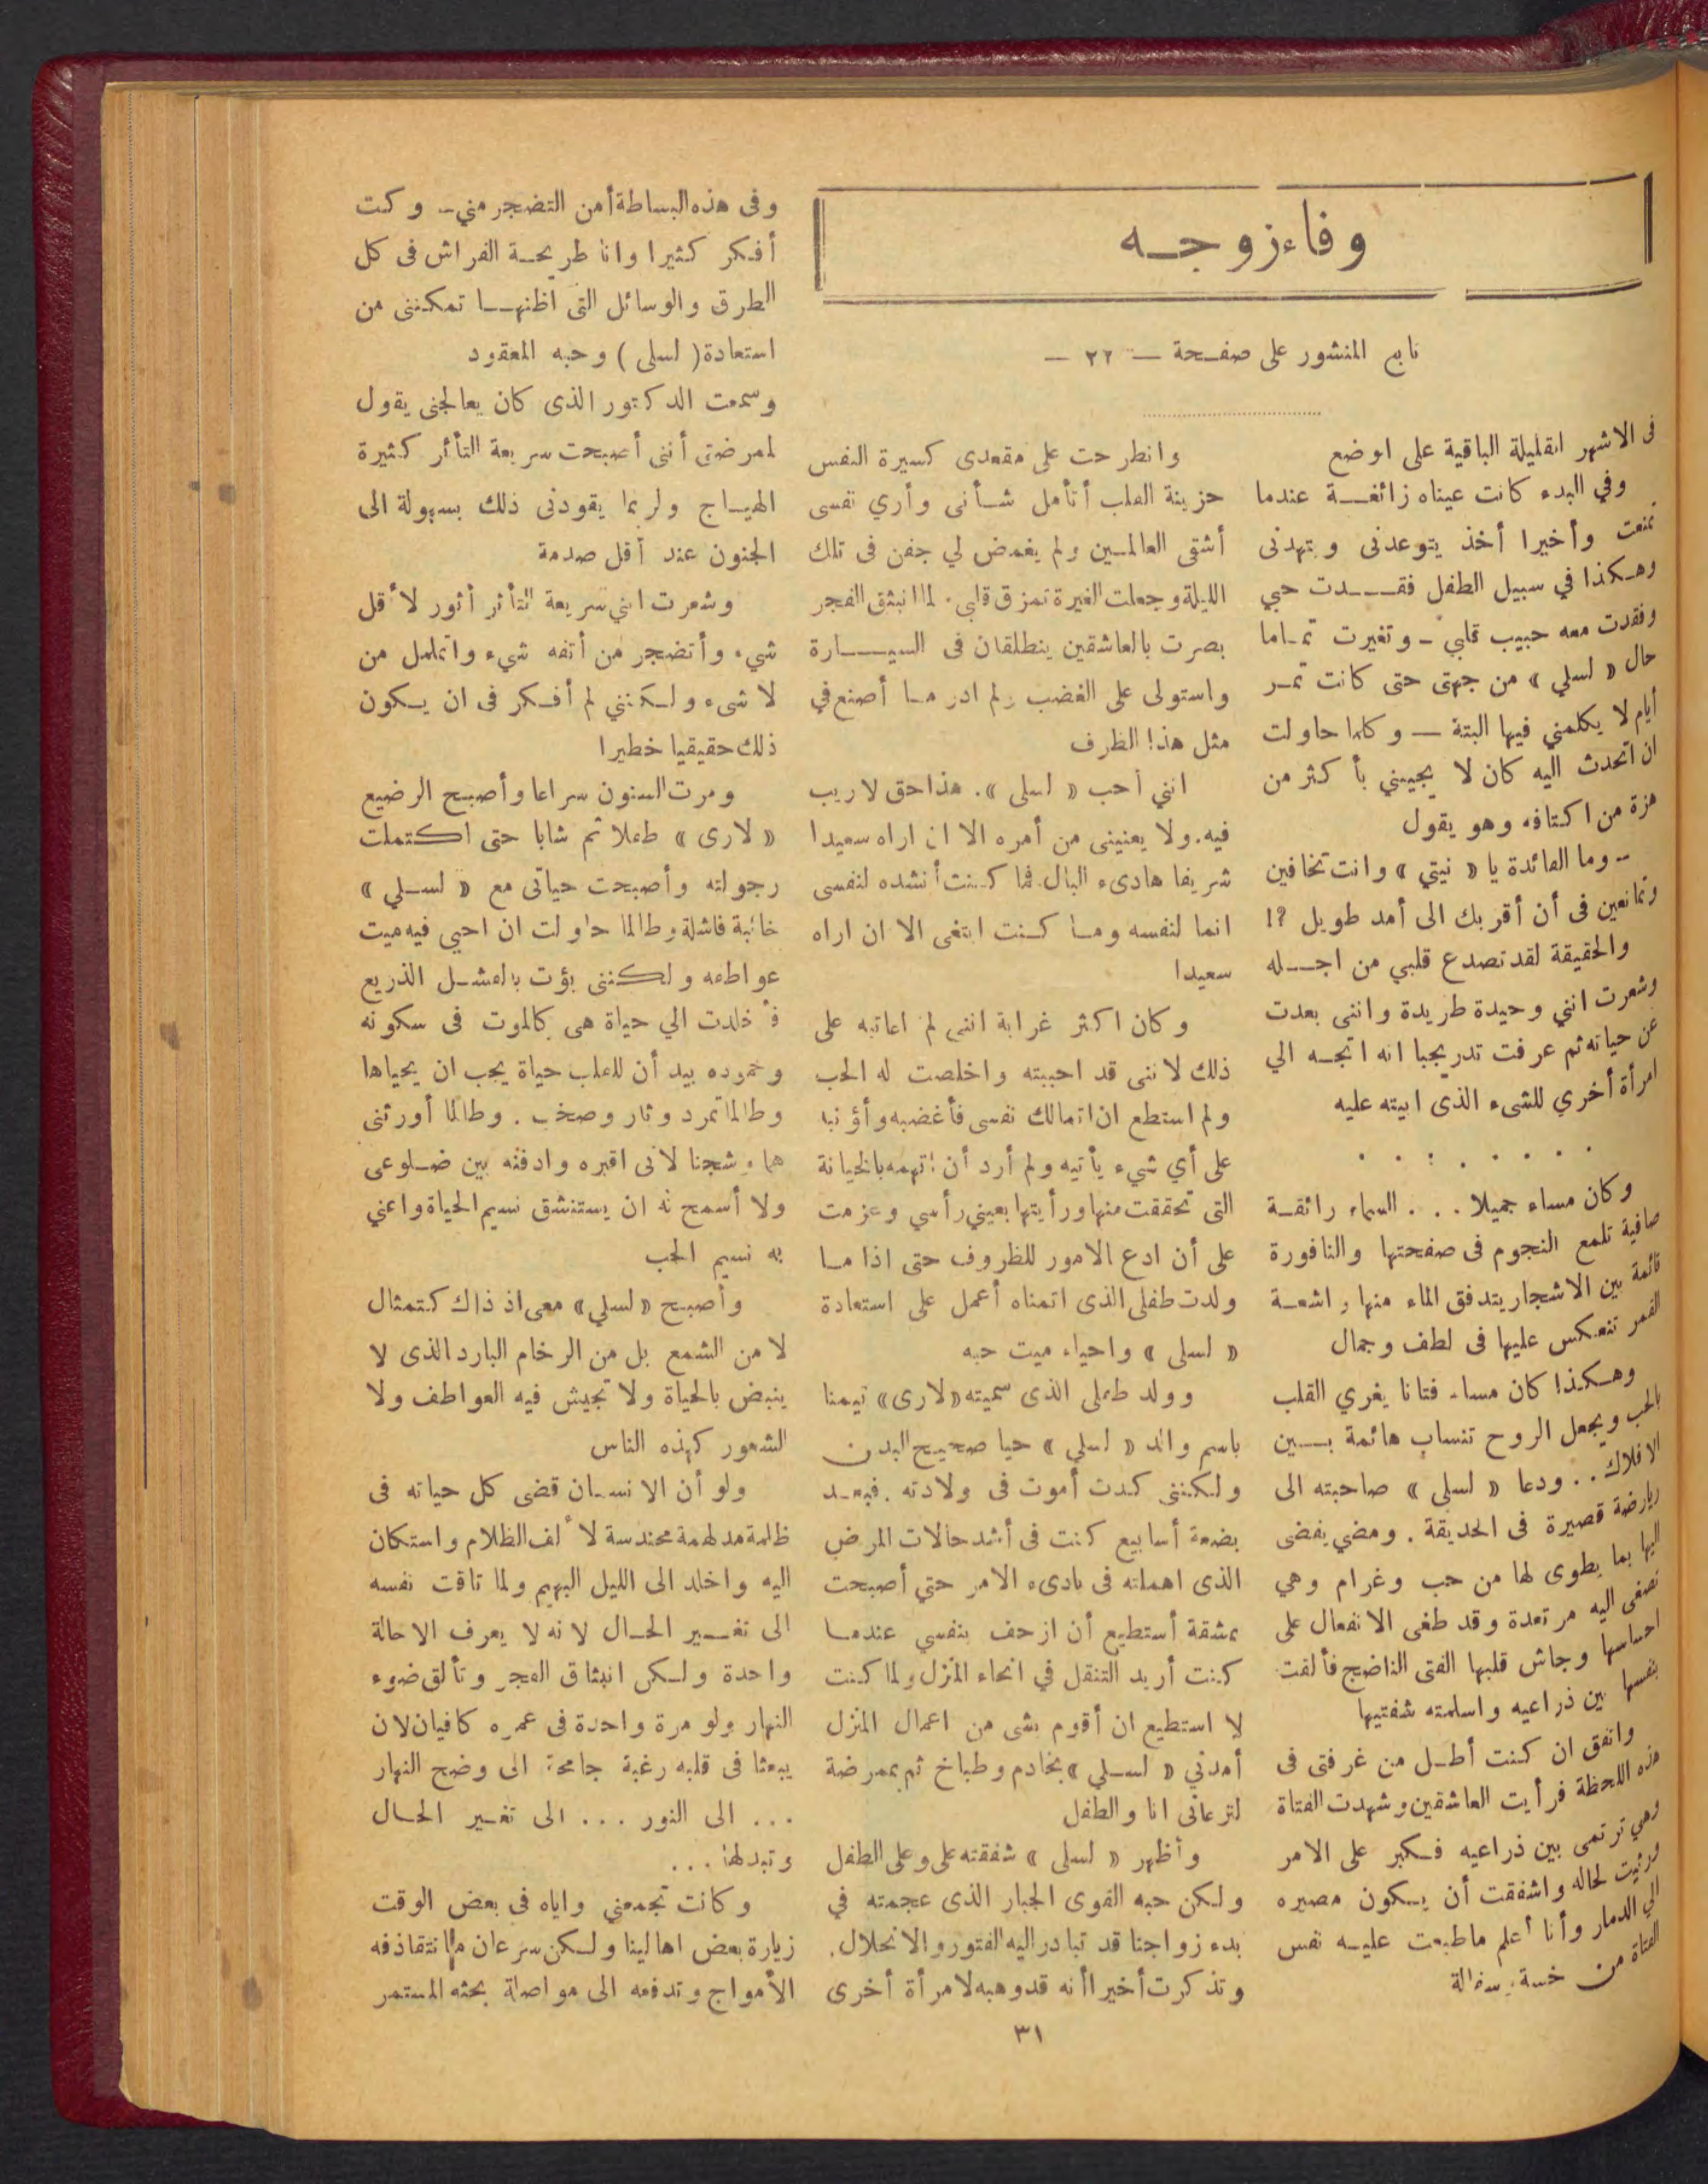 وفاء زوجه
تابع المنشور على صفحة — ٢٢ —
فى الاشهر القليلة الباقية على اوضع
وفي البدء كانت عيناه زائغة عندما
تمنعت وأخيرا أخذ يتوعدنى ويتهدنى
وهكذا في سبيل الطفل فقدت حبي
وفقدت معه حبيب قلبي - وتغيرت تماما
حال « لسلي » من جهتى حتى كانت تمر
أيام لا يكلمني فيها البتة — وكلما حاولت
ان اتحدث اليه كان لا يجيبني بأكثر من
هزة من اكتافه وهو يقول
- وما الفائدة يا « نيتي » وانت تخافين
وتمانعين فى أن أقربك الى أمد طويل ؟!
والحقيقة لقد تصدع قلبي من اجله
وشعرت انني وحيدة طريدة واننى بعدت
عن حياته ثم عرفت تدريجبا انه اتجه الي
امرأة أخري للشىء الذى ابيته عليه
. . . . . . . .
وكان مساء جميلا . . . السماء رائقة
صافية تلمع النجوم فى صفحتها والنافورة
قائمة بين الاشجار يتدفق الماء منها واشعة
القمر تنعكس عليها فى لطف وجمال
وهكذا كان مساء فتانا يغري القلب
بالحب ويجعل الروح تنساب هائمة بين
الافلاك . . ودعا « لسلي » صاحبته الى
رياضة قصيرة فى الحديقة . ومضي يفضى
اليها بما يطوى لها من حب وغرام وهي
تصغى اليه مرتعدة وقد طغى الانفعال على
احساسها وجاش قلبها الفتى الناضج فألفت
بنفسها بين ذراعيه واسلمته شفتيها
واتفق ان كنت أطل من غرفتى فى
هذه اللحظة فرأيت العاشقين وشهدت الفتاة
وهي ترتمى بين ذراعيه فكبر على الامر
ورثيت لحاله واشفقت أن يكون مصيره
الي الدمار وأنا أعلم ما طبعت عليه نفس
الفتاة من خسة وسفالة
وانطرحت على مقعدى كسيرة النفس
حزينة القلب أتأمل شأنى وأري نفسى
أشقى العالمين ولم يغمض لي جفن فى تلك
الليلة وجعلت الغيرة تمزق قلبي . لما انبثق الفجر
بصرت بالعاشقين ينطلقان فى السيارة
واستولى على الغضب ولم ادر ما أصنع في
مثل هذا الظرف
انني أحب « لسلى » . هذا حق لا ريب
فيه . ولا يعنينى من أمره الا ان اراه سعيدا
شريفا هادىء البال فما كنت أنشده لنفسى
انما لنفسه وما كنت ابتغى الا ان اراه
سعيدا
وكان اكثر غرابة اننى لم اعاتبه على
ذلك لاننى قد احببته واخلصت له الحب
ولم استطع ان اتمالك نفسى فأغضبه وأؤنبه
على أي شيء يأتيه ولم أرد أن اتهمه بالخيانة
التى تحققت منها ورأيتها بعيني رأسي وعزمت
على أن ادع الامور للظروف حتى اذا ما
ولدت طفلى الذى اتمناه أعمل على استعادة
« لسلى » واحياء ميت حبه
وولد طفلى الذى سميته « لارى » تيمنا
باسم والد « لسلي » حيا صحيح البدن
ولكننى كدت أموت فى ولادته . فبعد
بضعة أسابيع كنت فى أشد حالات المرض
الذى اهملته فى بادىء الامر حتي أصبحت
بمشقة أستطيع أن ازحف بنفسي عندما
كنت أريد التنقل في انحاء المنزل ولما كنت
لا استطيع ان أقوم بشى من اعمال المنزل
أمدني « لسلي » بخادم وطباخ ثم بممرضة
لترعانى انا والطفل
وأظهر « لسلى » شفقته على وعلى الطفل
ولكن حبه القوى الجبار الذى عجمته في
بدء زواجنا قد تبادر اليه الفتور والانحلال .
وتذكرت أخيرا أنه قد وهبه لامرأة أخرى
وفى هذه البساطة أمن التضجر مني - وكنت
أفكر كثيرا وانا طريحة الفراش فى كل
الطرق والوسائل التى اظنها تمكننى من
استعادة ( لسلى ) وحبه المعقود
وسمعت الدكتور الذى كان يعالجنى يقول
لممرضتى أننى أصبحت سريعة التأثر كثيرة
الهياج ولربما يقودنى ذلك بسهولة الى
الجنون عند أقل صدمة
وشعرت انني سريعة التأثر أثور لأقل
شيء وأتضجر من أتفه شيء واتململ من
لا شىء ولكنني لم أفكر فى ان يكون
ذلك حقيقيا خطيرا
ومرت السنون سراعا وأصبح الرضيع
« لارى » طفلا ثم شابا حتى اكتملت
رجولته وأصبحت حياتى مع « لسلي »
خائبة فاشلة وطالما حاولت ان احيي فيه ميت
عواطفه ولكننى بؤت بالفشل الذريع
فأخلدت الي حياة هى كالموت فى سكونه
وخموده بيد أن للقلب حياة يجب ان يحياها
وطالما تمرد وثار وصخب . وطالما أورثنى
هما وشجنا لانى اقبره وادفنه بين ضلوعى
ولا أسمح له ان يستنشق نسيم الحياة واعني
به نسيم الحب
وأصبح « لسلي » معى اذ ذاك كتمثال
لا من الشمع بل من الرخام البارد الذى لا
ينبض بالحياة ولا تجيش فيه العواطف ولا
الشعور كهذه الناس
ولو أن الانسان قضى كل حياته فى
ظلمة مدلهمة محندسة لألف الظلام واستكان
اليه واخلد الى الليل البهيم ولما تاقت نفسه
الى تغيير الحال لانه لا يعرف الا حالة
واحدة ولكن انبثاق الفجر وتألق ضوء
النهار ولو مرة واحدة فى عمره كافيان لان
يبعثا فى قلبه رغبة جامحة الى وضح النهار
. . . الى النور . . . الى تغيير الحال
وتبدلها . . .
وكانت تجمعني واياه فى بعض الوقت
زيارة بعض اهالينا ولكن سرعان ما تتقاذفه
الأمواج وتدفعه الى مواصلة بحثه المستمر
٣١